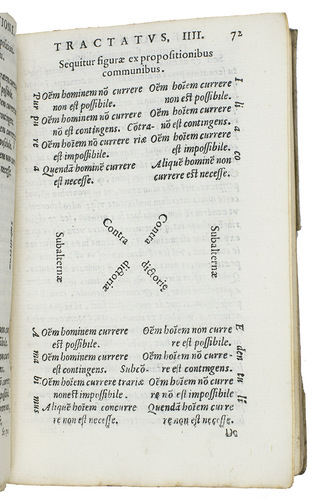 TRACTATVS, IIII. 72
Sequitur figuræ ex propositionibus
communibus.
Pur pu re a
Oẽm hominem nõ currere
non est possibile.
Oẽm hominem nõ currere
nõ est contingens.
Oẽm hominem nõ currere
est impossibile.
Quendã hominẽ currere
est necesse.
Cõtra-
riæ
Oẽm hoĩem currere
non est possibile.
Oẽm hoĩem currere
nõ est contingens.
Oẽm hoĩem currere
est impossibile.
Aliquẽ hominẽ non
currere est necesse.
I li a ce
Subalternæ
Contra
dictoriæ
Contra
dictoriæ
Subalternæ
A ma bi mus
Oẽm hominem currere
est possibile.
Oẽm hominem currere
est contingens.
Oẽm hoĩem currere
non est impossibile.
Aliquẽ hoĩem concurre
re non est necesse.
Subcõ-
trariæ
Oẽm hoĩem non curre
re est possibile.
Oẽm hoĩem nõ curre-
re est contingens.
Oẽm hoĩem nõ curre
re nõ est impossibile
Quendã hoĩem curre
re non est necesse.
E den tu li